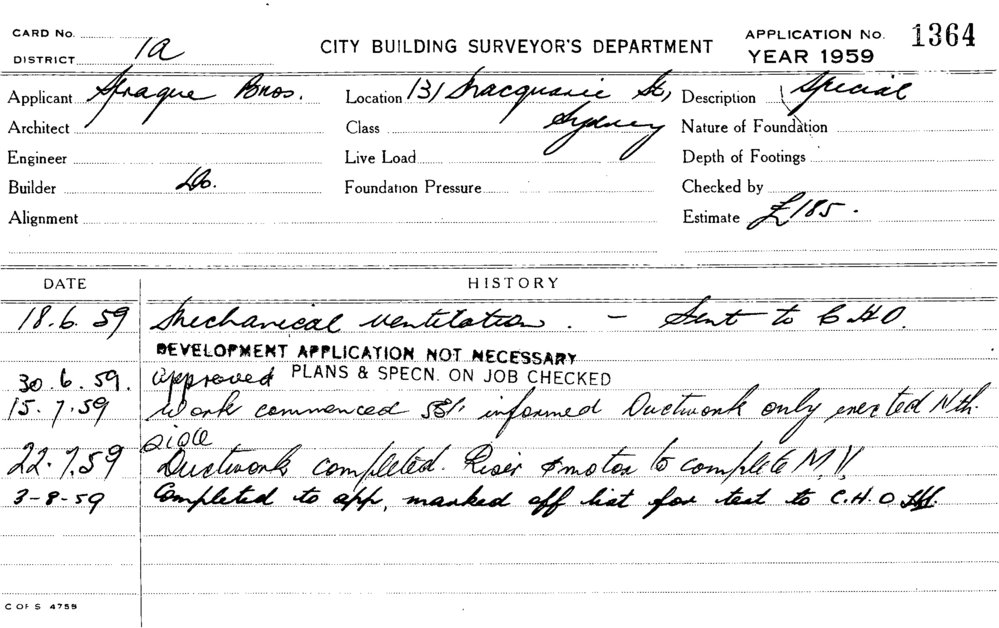 CARD No.
DISTRICT 1A
CITY BUILDING SURVEYOR'S DEPARTMENT
APPLICATION No. 1364
YEAR 1959
Applicant Sprague Bros. Location 131 Macquarie St, Description Special
Architect Class Sydney Nature of Foundation
Engineer Live Load Depth of Footings
Builder Do. Foundation Pressure Checked by
Alignment Estimate £185.
DATE HISTORY
18.6.59 Mechanical ventilation. - Sent to C.H.O.
DEVELOPMENT APPLICATION NOT NECESSARY
30.6.59. approved PLANS & SPECN. ON JOB CHECKED
15.7.59 Work commenced informed Ductwork only erected Nth.
side
22.7.59 Ductwork completed. Riser & motor to complete M.V.
3-8-59 Completed to app, marked off list for test to C.H.O
C OF S 4759